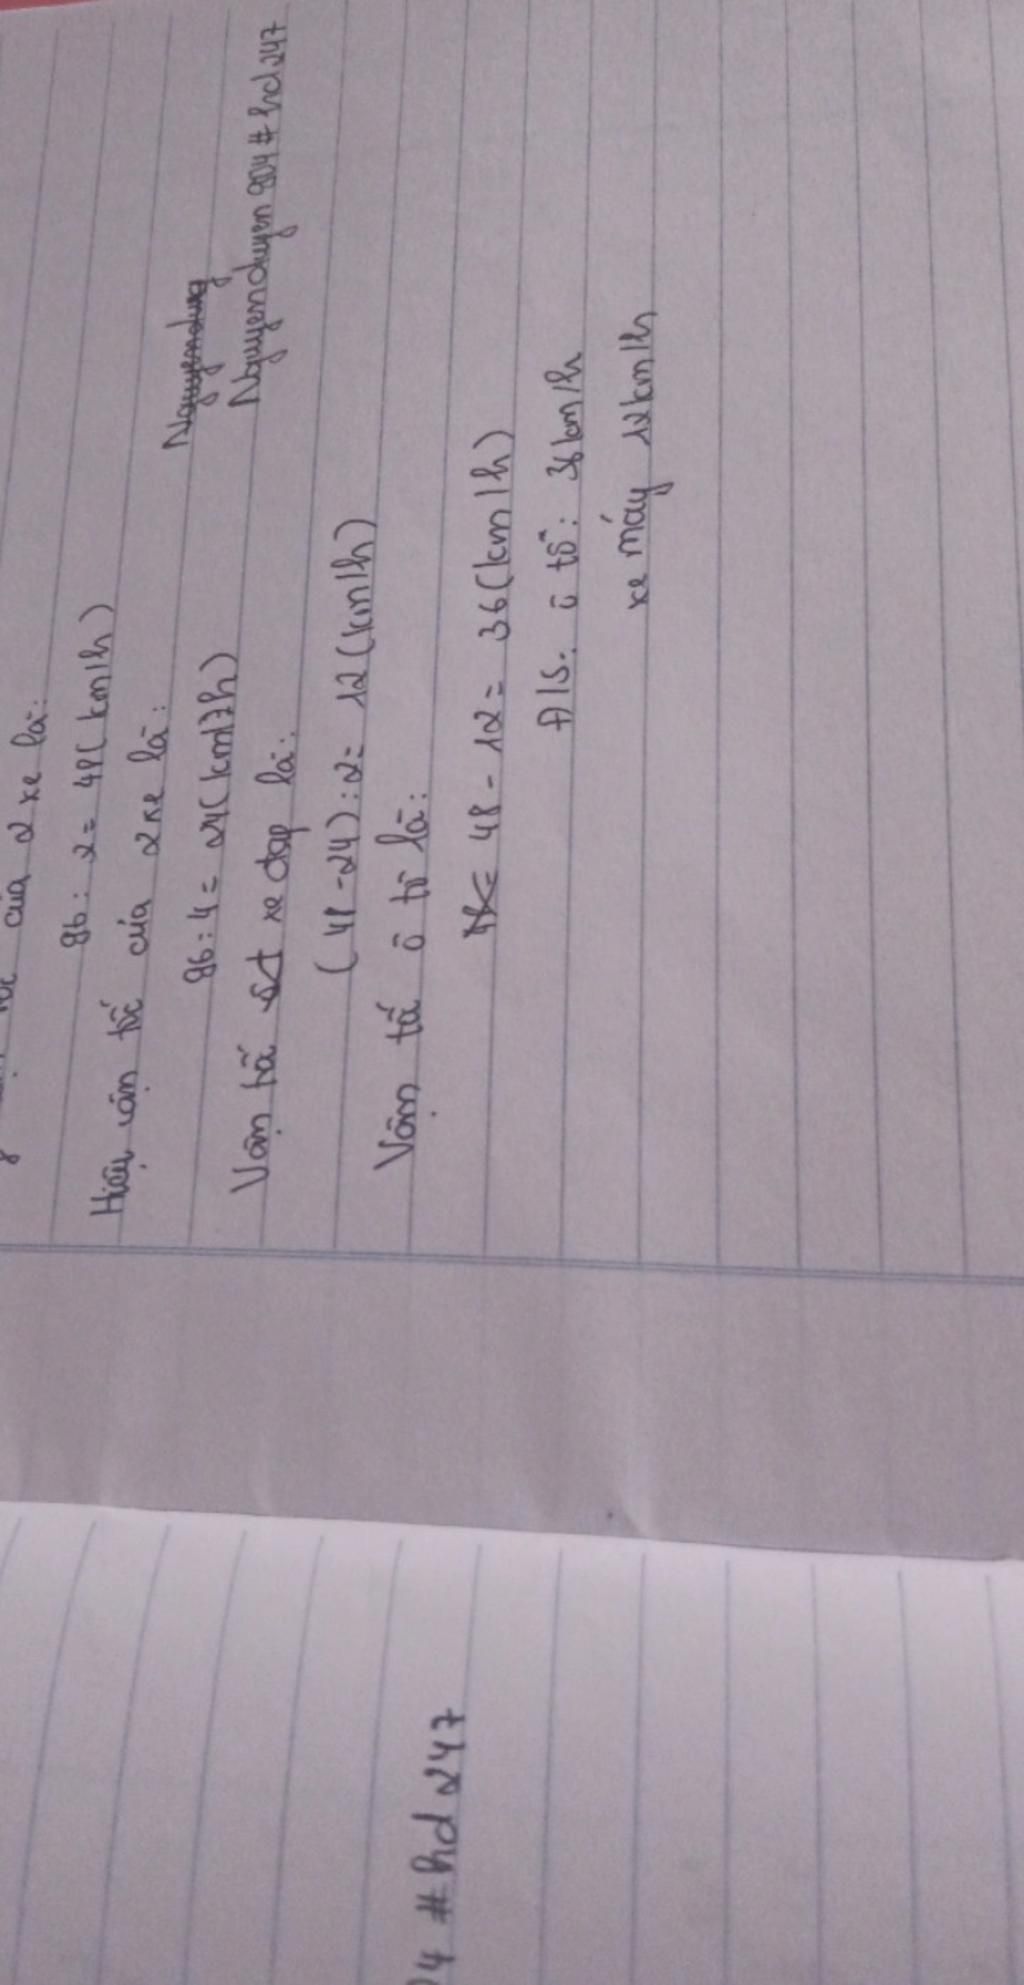 của 2 xe là:
96 : 2 = 48 ( km/h )
Hiệu vận tốc của 2 xe là :
96 : 4 = 24 ( km/h )
Nguyenduy
Vận tố xe đạp là :
Nguyenduyen904#hd247
( 48 - 24 ) : 2 = 12 ( km/h )
Vận tố ô tô là :
48 - 12 = 36 ( km/h )
Đ/S : ô tô : 36 km/h
xe máy 12 km/h
4 # hd247